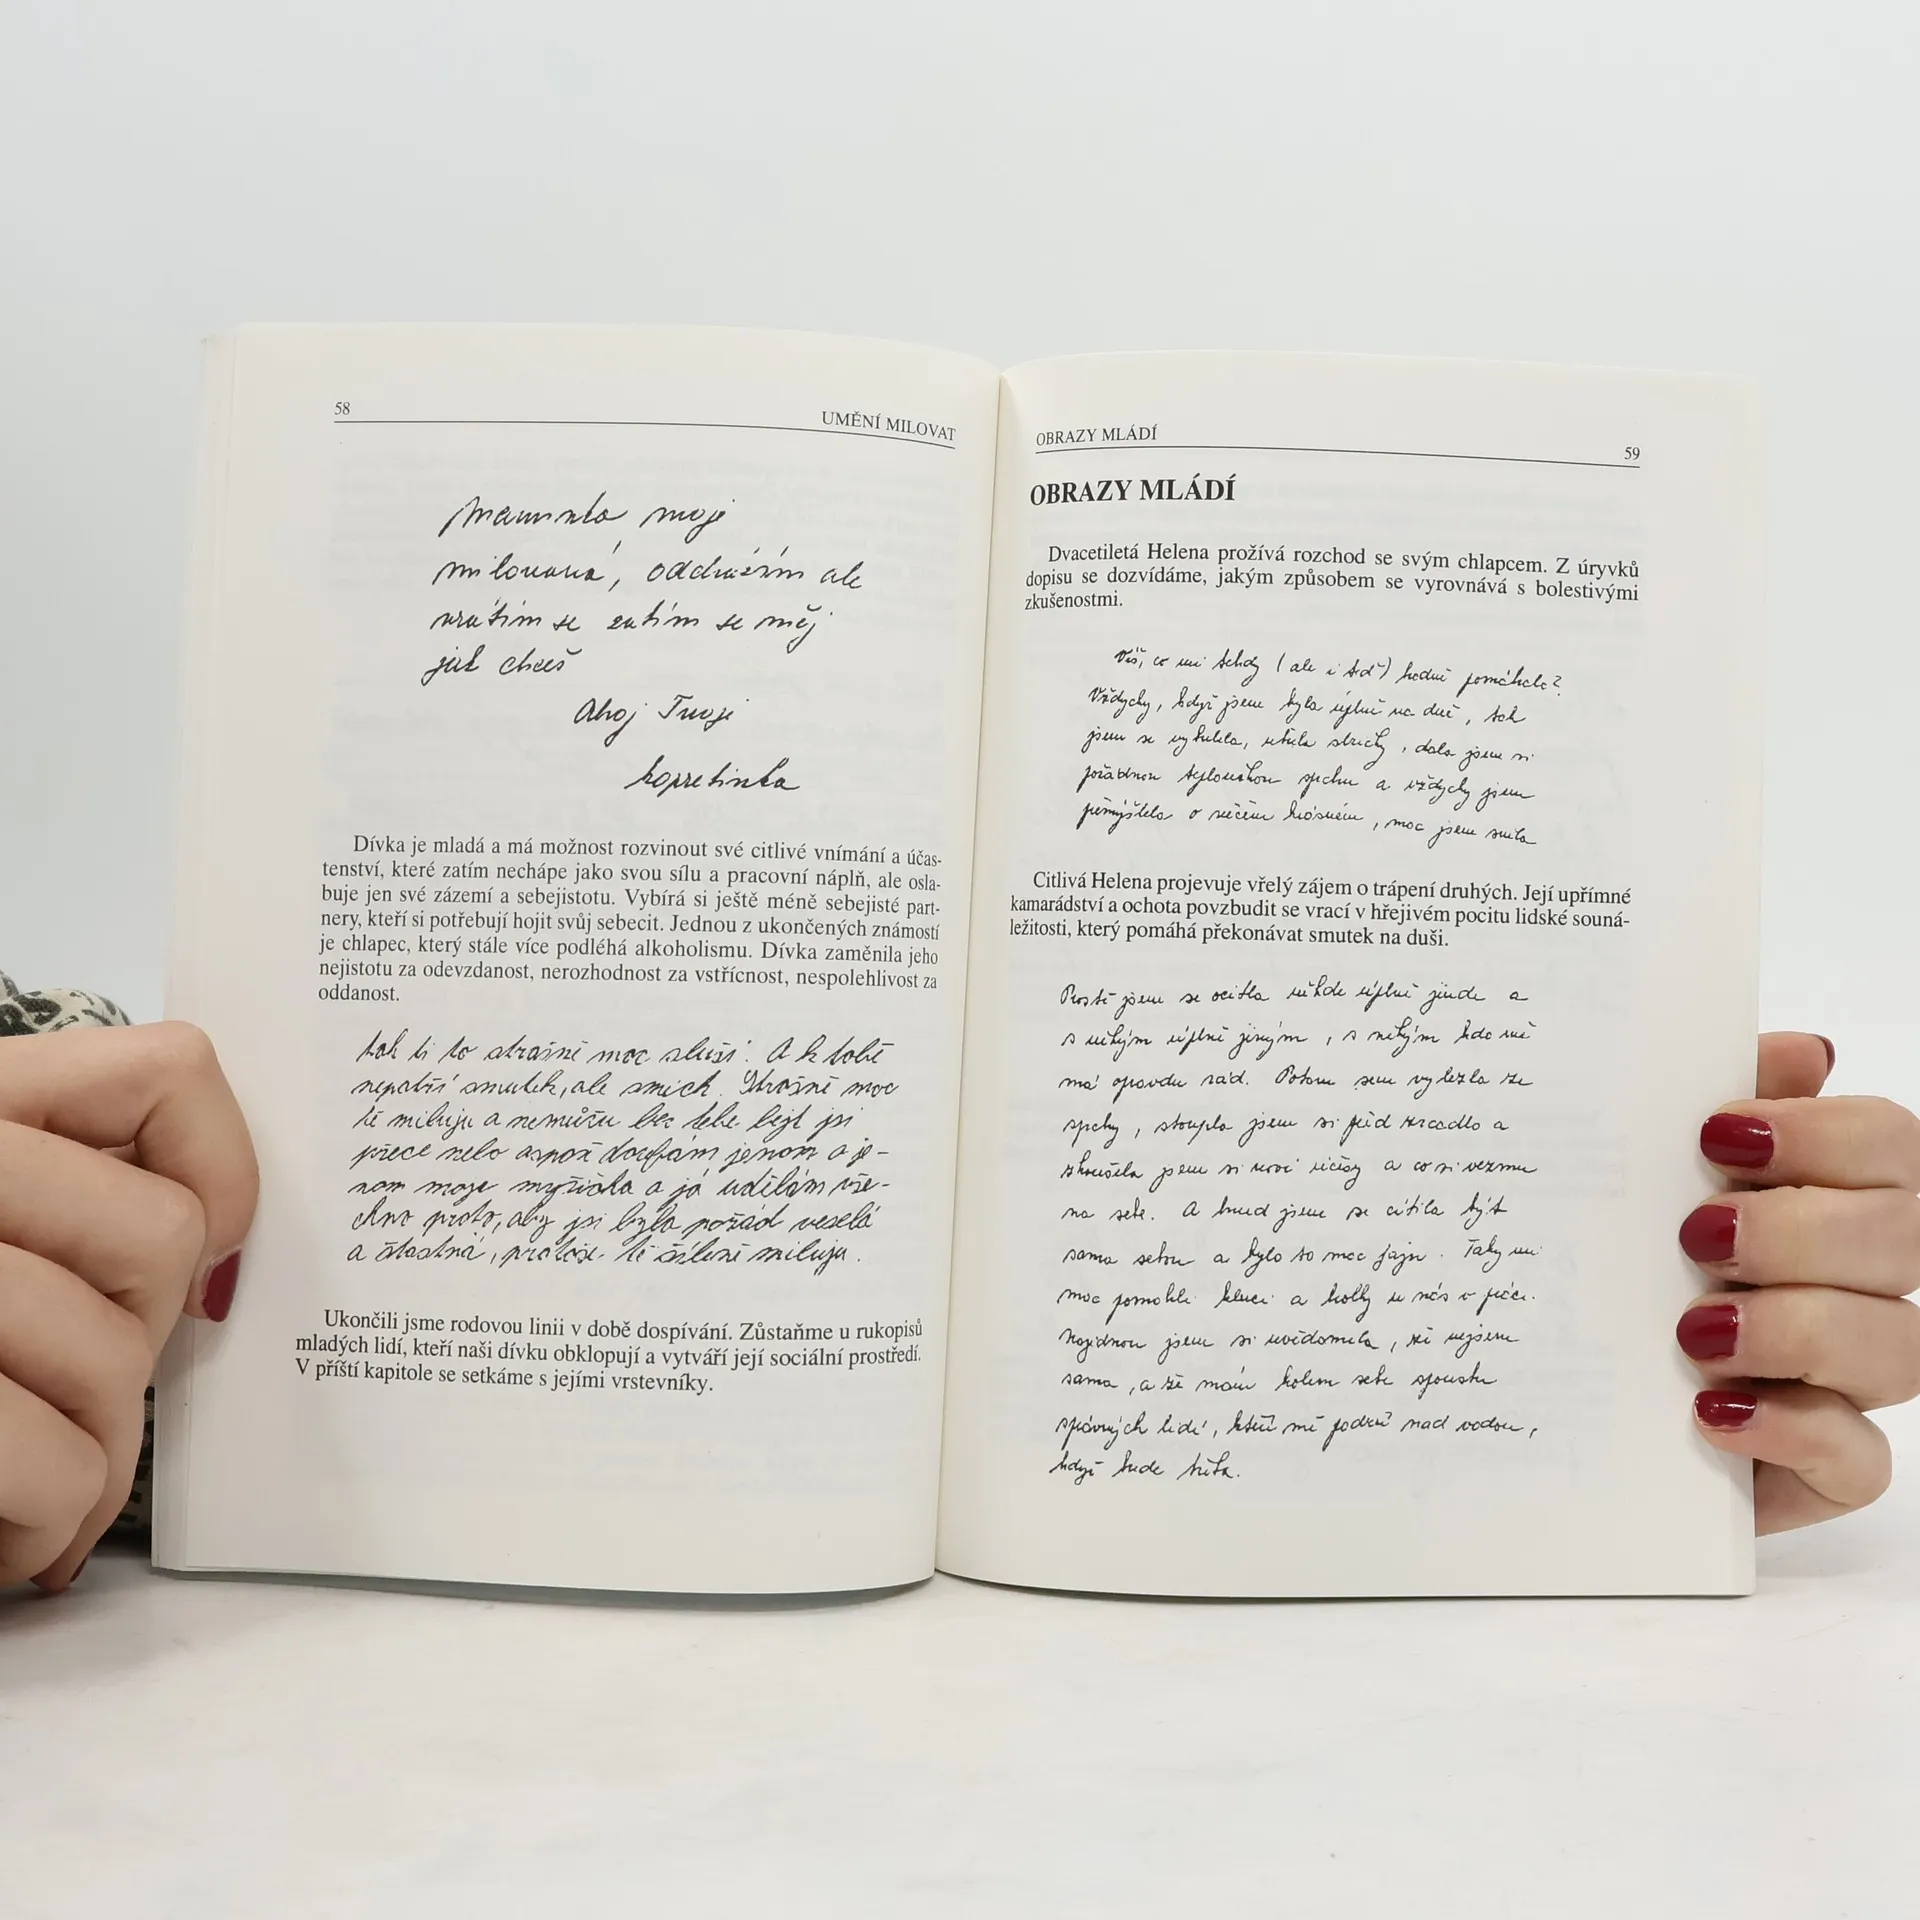 58
UMĚNÍ MILOVAT
Maminko moje
milovaná, odcházím ale
vrátím se zatím se měj
jak chceš
Ahoj Tvoje
kopretinka
Dívka je mladá a má možnost rozvinout své citlivé vnímání a účas-
tenství, které zatím nechápe jako svou sílu a pracovní náplň, ale osla-
buje jen své zázemí a sebejistotu. Vybírá si ještě méně sebejisté part-
nery, kteří si potřebují hojit svůj sebecit. Jednou z ukončených známostí
je chlapec, který stále více podléhá alkoholismu. Dívka zaměnila jeho
nejistotu za odevzdanost, nerozhodnost za vstřícnost, nespolehlivost za
oddanost.
tak ti to strašně moc sluší. A k tobě
nepatří smutek, ale smích. Strašně moc
tě miluju a nemůžu bez tebe být jsi
přece nebo aspoň doufám jenom a je-
nom moje myšička a já udělám vše-
chno proto, aby jsi byla pořád veselá
a šťastná, protože tě šíleně miluju.
Ukončili jsme rodovou linii v době dospívání. Zůstaňme u rukopisů
mladých lidí, kteří naši dívku obklopují a vytváří její sociální prostředí.
V příští kapitole se setkáme s jejími vrstevníky.
OBRAZY MLÁDÍ
59
OBRAZY MLÁDÍ
Dvacetiletá Helena prožívá rozchod se svým chlapcem. Z úryvků
dopisu se dozvídáme, jakým způsobem se vyrovnává s bolestivými
zkušenostmi.
Víš, co mi tehdy (ale i teď) hodně pomáhalo?
Vždycky, když jsem byla úplně na dně, tak
jsem se vybulela, utřela slzičky, dala jsem si
pořádnou teploučkou sprchu a vždycky jsem
přemýšlela o něčem krásném, moc jsem snila
Citlivá Helena projevuje vřelý zájem o trápení druhých. Její upřímné
kamarádství a ochota povzbudit se vrací v hřejivém pocitu lidské souná-
ležitosti, který pomáhá překonávat smutek na duši.
Prostě jsem se ocitla někde úplně jinde a
s někým úplně jiným, s někým kdo mě
má opravdu rád. Potom sem vylezla ze
sprchy, stoupla jsem si před zrcadlo a
zkoušela jsem si nové účesy a co si vezmu
na sebe. A hned jsem se cítila být
sama sebou a bylo to moc fajn. Taky mi
moc pomohli kluci a holky u nás v práci.
Najednou jsem si uvědomila, že nejsem
sama, a že mám kolem sebe spoustu
správných lidí, kteří mě podrží nad vodou,
když bude třeba.